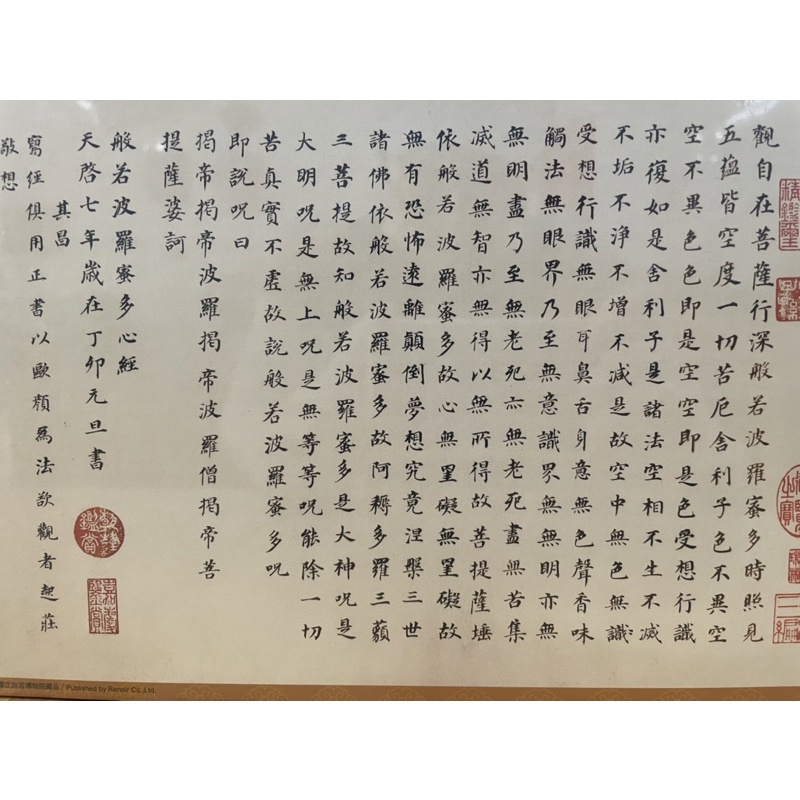 觀自在菩薩行深般若波羅蜜多時照見
五蘊皆空度一切苦厄舍利子色不異空
空不異色色即是空空即是色受想行識
亦復如是舍利子是諸法空相不生不滅
不垢不淨不增不減是故空中無色無識
受想行識無眼耳鼻舌身意無色聲香味
觸法無眼界乃至無意識界無無明亦無
無明盡乃至無老死亦無老死盡無苦集
滅道無智亦無得以無所得故菩提薩埵
依般若波羅蜜多故心無罣礙無罣礙故
無有恐怖遠離顛倒夢想究竟涅槃三世
諸佛依般若波羅蜜多故阿耨多羅三藐
三菩提故知般若波羅蜜多是大神呪是
大明呪是無上呪是無等等呪能除一切
苦真實不虛故說般若波羅蜜多呪
即說呪曰
揭帝揭帝波羅揭帝波羅僧揭帝菩
提薩婆訶
般若波羅蜜多心經
天啓七年歲在丁卯元旦書
其昌
寫經俱用正書以歐顏為法欲觀者起莊
敬想
國立故宮博物院藏品 / Published by Renoir Co.,Ltd.